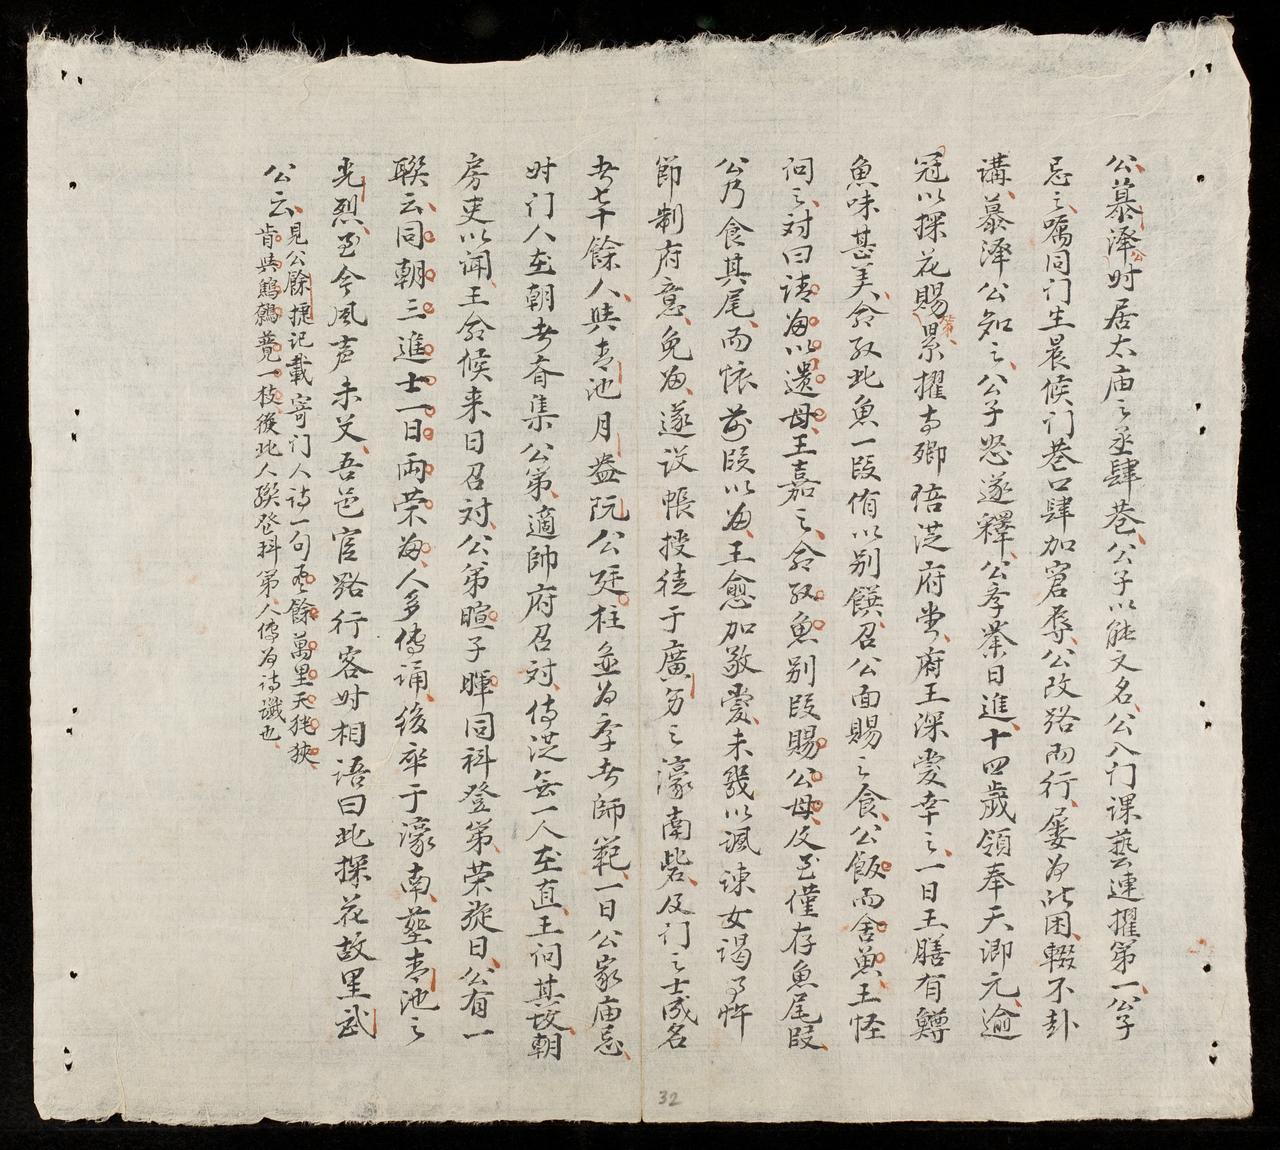 公慕澤公时居太庙之丞肆巷公子以能文名公入门课藝連擢第一公子
忌之嘱同门生晨候门巷口肆加窘辱公改路而行屡为所困輟不赴
講慕澤公知之公子怒遂釋公孝業日進十四歲領奉天鄉元逾
冠以探花賜第累擢寺卿陪洪府堂府王深愛幸之一日王膳有鱒
魚味甚美令取此魚一段侑以别饌召公面賜之食公飯而舍魚王怪
问之对曰请为以遗母王嘉之令取魚别段賜公母及至僅存魚尾段
公乃食其尾而懷前段以为王愈加敬愛未幾以諷諫女謁事忤
節制府意免为遂设帳授徒于廣舍之濠南砦及门之士成名
者七十餘人與青池月盎阮公廷柱並为孝者師範一日公家庙忌
时门人在朝者斉集公第適帥府召对侍洪無一人在直王问其故朝
房吏以闻王令候来日召对公第暄子暉同科登第荣旋日公有一
聯云同朝三進士一日両荣为人多傳诵後卒于濠南葬青池之
光烈至今風声未艾吾邑官路行客时相语曰此探花故里武
公云見公餘捷记載寄门人诗一句云餘萬里天猶狹
肯與鷦鷯覓一枝後此人联登科第人傳为诗讖也
32